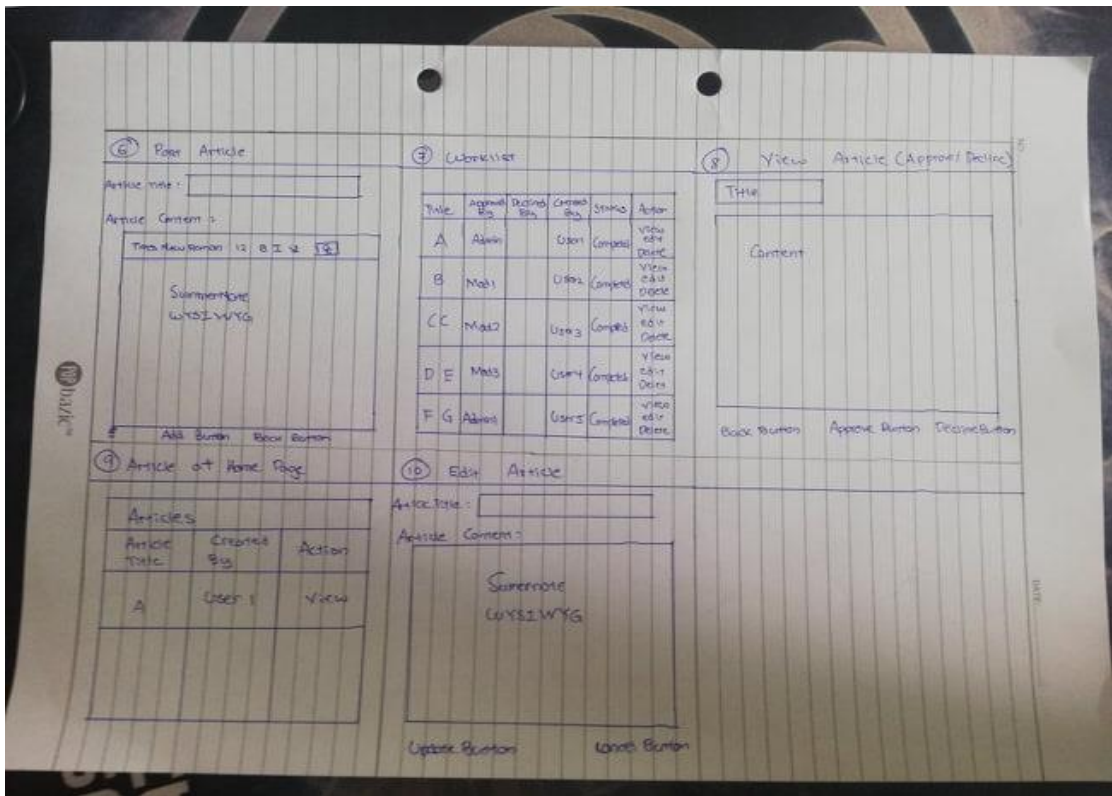 ⑥ Post Article
Article Title :
Article Content :
Times New Roman 12 B I U
SummerNote
WYSIWYG
Add Button Back Button
⑦ Worklist
Title Approved By Declined By Created By Status Action
A Admin User1 Completed View edit Delete
B Mod1 User2 Completed View edit Delete
CC Mod2 User3 Completed View edit Delete
D E Mod3 User4 Completed View edit Delete
F G Admin User5 Completed View edit Delete
⑧ View Article (Approve/Decline)
Title
Content
Back Button Approve Button Decline Button
⑨ Article at Home Page
Articles
Article Title Created By Action
A User 1 View
⑩ Edit Article
Article Title :
Article Content :
Summernote
WYSIWYG
Update Button Cancel Button
bazic
DATE